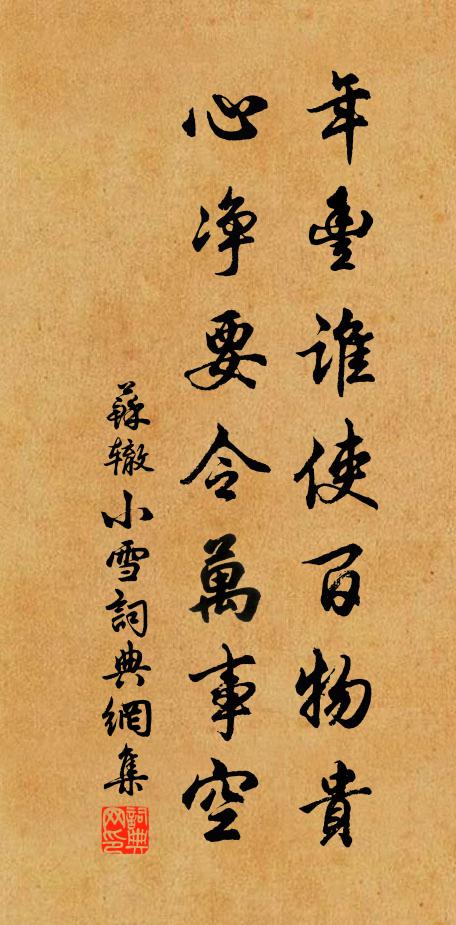 年豐誰使百物貴
心净要令萬事空
蘇辙小雪詞典網集
詞典网印